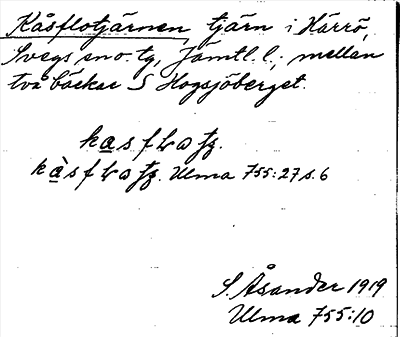 Kåsflotjärnen, tjärn i Härrö,
Svegs sn o. tg, Jämtl. l.; mellan
två bäckar S Hogsjöberget.
Ulma 755:27 s. 6
S. Åsander 1919
Ulma 755:10